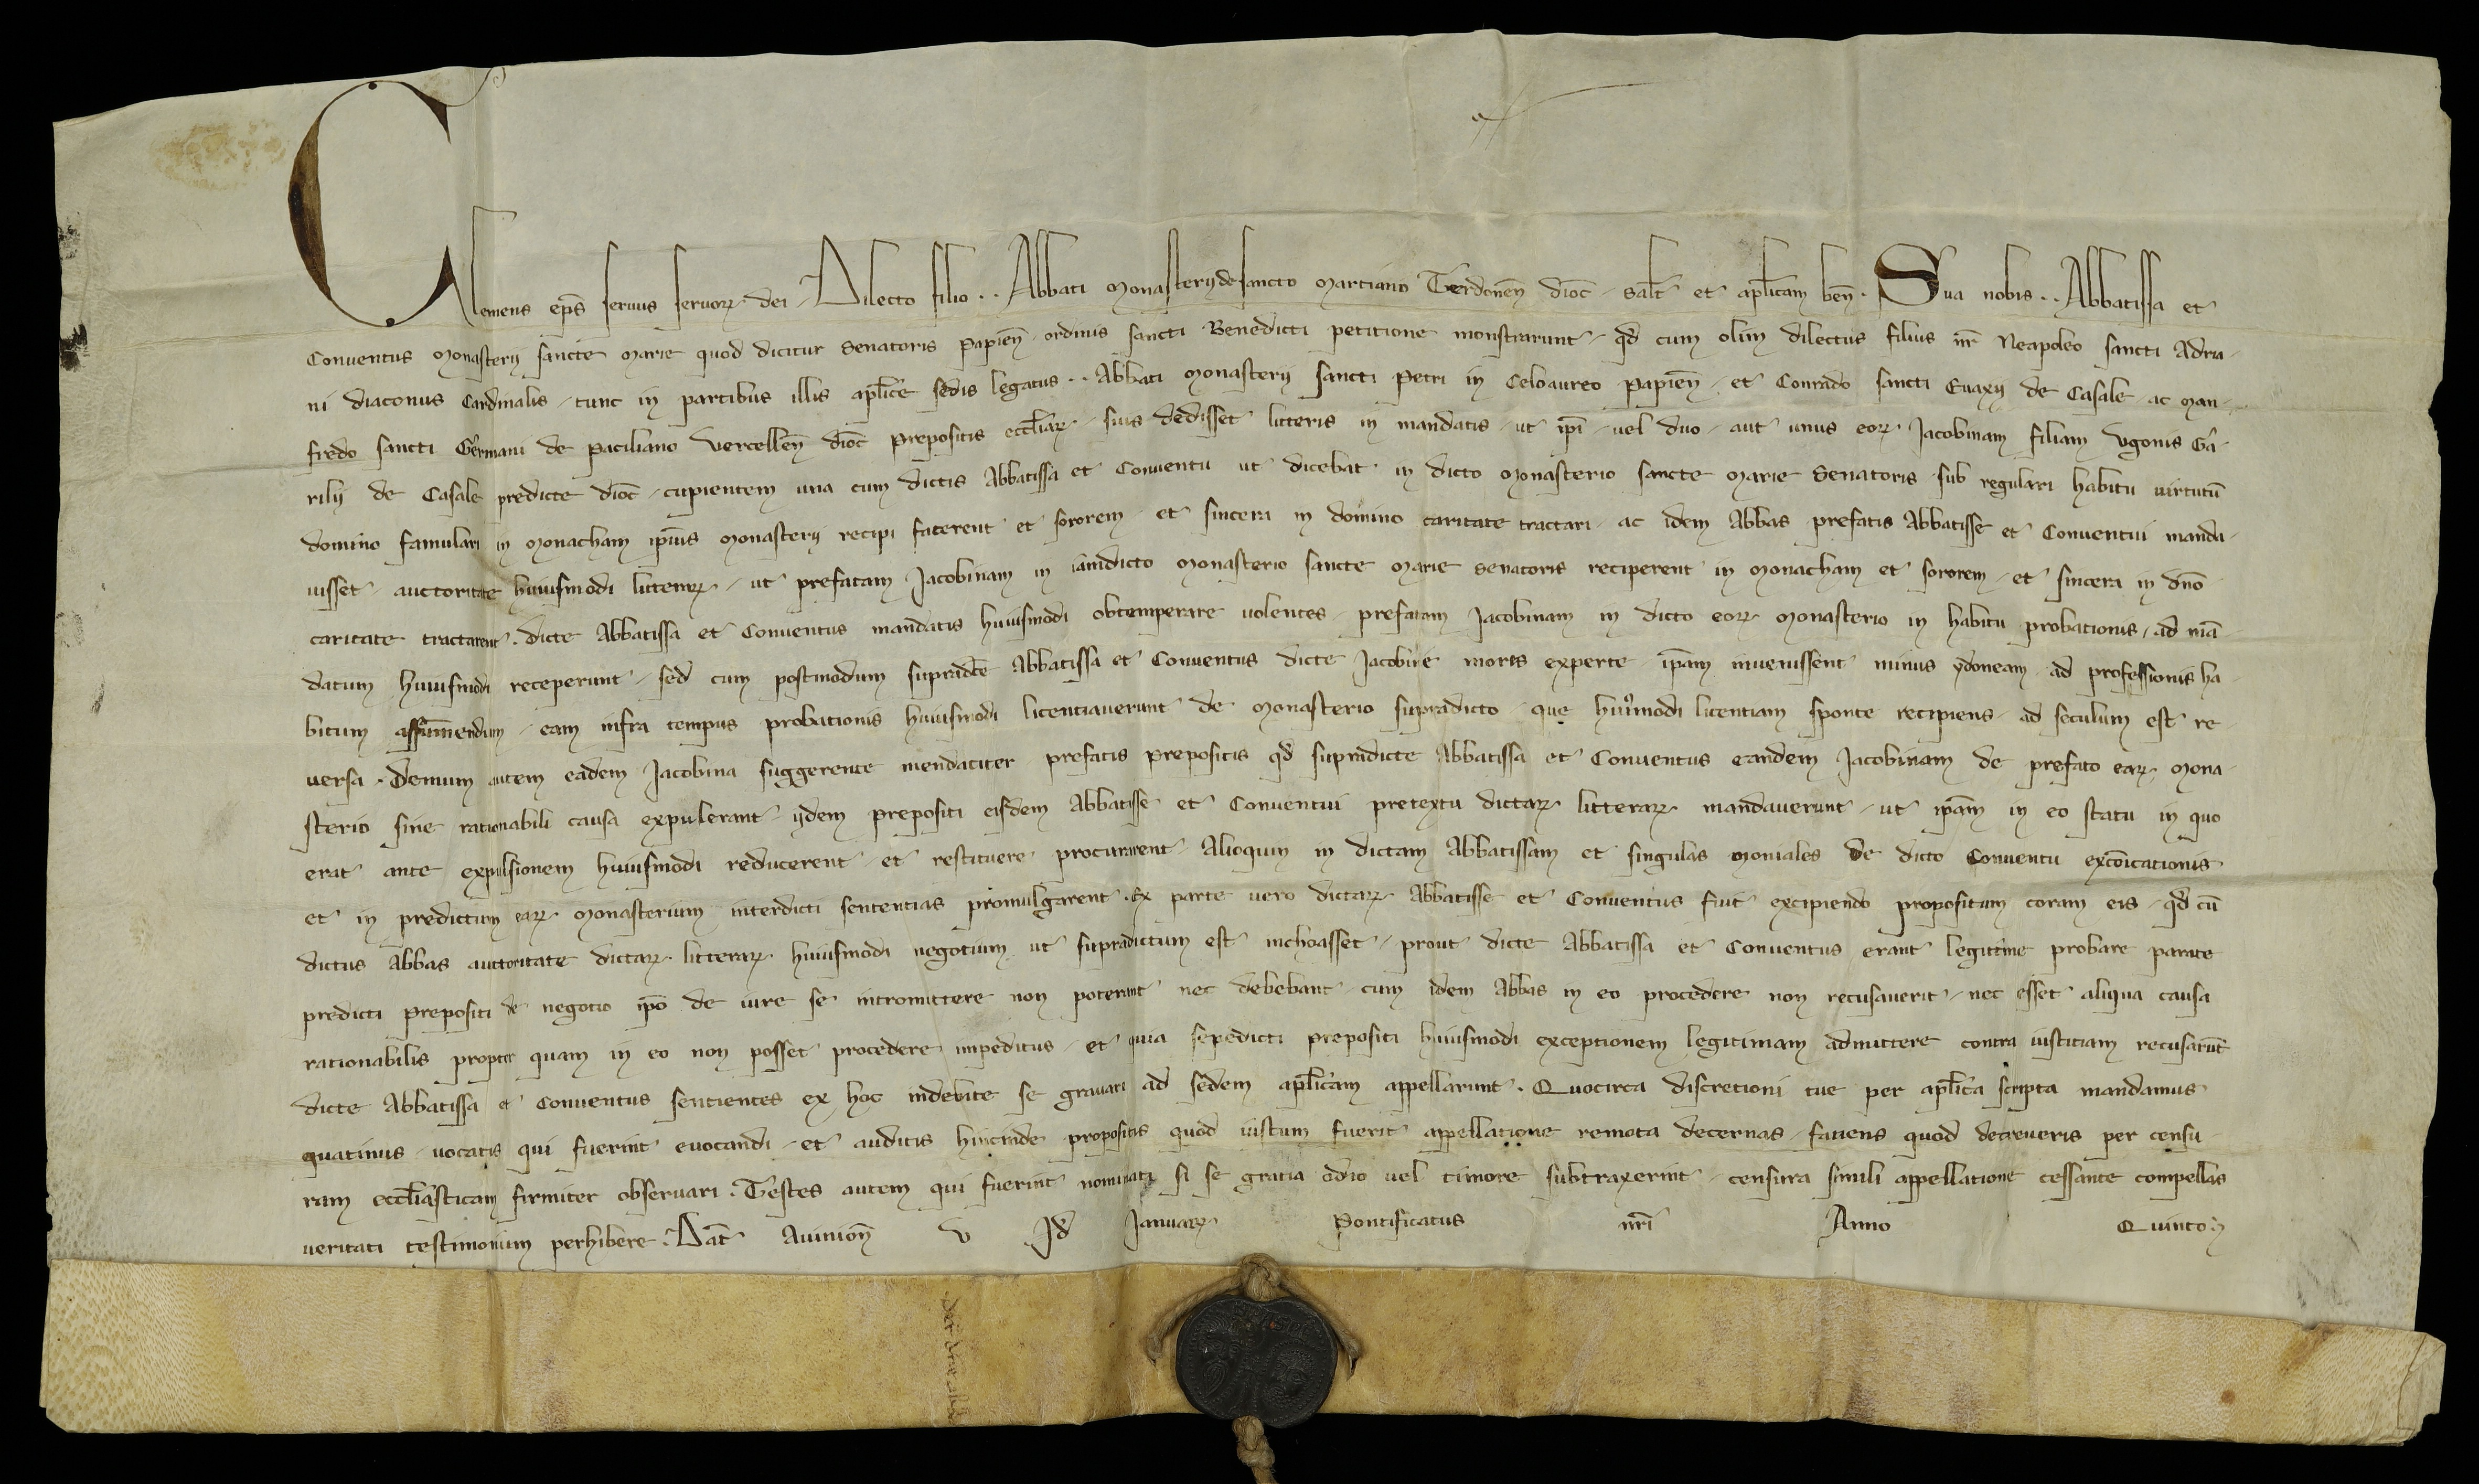 Clemens ep̄s servus servoꝝ dei. Dilecto filio .. Abbati Monasterij de sancto Martiano Terdoneñ dioc̄. salt̄ et ap̄licam beñ. Sua nobis .. Abbatissa et
Conventus Monasterij sancte Marie quod dicitur Senatoris Papieñ ordinis sancti Benedicti petitione monstrarunt, qd̄ cum olim dilectus filius nr̄ Neapoleo sancti Adria
ni diaconus Cardinalis, tunc in partibus illis ap̄lice sedis legatus .. Abbati Monasterij sancti Petri in Celoaureo Papieñ, et Conrado sancti Evaxij de Casale ac Man
fredo sancti Germani de Paciliano Vercelleñ dioc̄ Prepositis eccl̄iaꝝ, suis dedisset litteris in mandatis, ut ip̄i vel duo aut unus eoꝝ Jacobinam filiam Ugonis Ga
rilij de Casale predicte dioc̄, cupientem una cum dictis Abbatissa et Conventu ut dicebat in dicto Monasterio sancte Marie Senatoris sub regulari habitu virtutū
domino famulari in Monacham ip̄ius Monasterij recipi facerent et sororem, et sincera in domino caritate tractari, ac idem Abbas prefatis Abbatisse et Conventui manda
visset, auctoritate huiusmodi litteraꝝ, ut prefatam Jacobinam in iamdicto Monasterio sancte Marie Senatoris reciperent in Monacham et sororem, et sincera in dn̄o
caritate tractarent. Dicte Abbatissa et Conventus mandatis huiusmodi obtemperare volentes, prefatam Jacobinam in dicto eoꝝ Monasterio in habitu probationis, ad mā
datum huiusmodi receperunt, sed cum postmodum supradc̄e Abbatissa et Conventus dicte Jacobine mores experte, ip̄am invenissent minus ydoneam, ad professionis ha
bitum assumendum, eam infra tempus probationis huiusmodi licentiaverunt de Monasterio supradicto, que huiꝰmodi licentiam sponte recipiens, ad seculum est re
versa. Demum autem eadem Jacobina suggerente mendaciter prefatis Prepositis qd̄ supradicte Abbatissa et Conventus eandem Jacobinam de prefato eaꝝ Mona
sterio sine rationabili causa expulerant, ijdem Prepositi eisdem Abbatisse et Conventui pretextu dictaꝝ litteraꝝ mandaverunt, ut ip̄am in eo statu in quo
erat ante expulsionem huiusmodi reducerent, et restituere procurarent Alioquin in dictam Abbatissam et singulas Moniales de dicto Conventu excōicationis
et in predictum eaꝝ Monasterium interdicti sententias promulgarent. Ex parte vero dictaꝝ Abbatisse et Conventus fuit excipiendo propositum coram eis, qd̄ cū
dictus Abbas auctoritate dictaꝝ litteraꝝ huiusmodi negotium ut supradictum est inchoasset, prout dicte Abbatissa et Conventus erant legitime probare parate
predicti Prepositi de negotio ip̄o de iure se intromittere non poterant nec debebant, cum idem Abbas in eo procedere non recusaverit, nec esset aliqua causa
rationabilis propter quam in eo non posset procedere impeditus, et quia sepedicti Prepositi huiusmodi exceptionem legitimam admittere contra iustitiam recusarūt
dicte Abbatissa et Conventus sentientes ex hoc indebite se gravari ad sedem ap̄licam appellarunt. Quocirca discretioni tue per ap̄lica scripta mandamus
quatinus, vocatis qui fuerint evocandi, et auditis hincinde propositis quod iustum fuerit appellatione remota decernas, faciens quod decreveris per censu
ram eccl̄iasticam firmiter observari. Testes autem qui fuerint nominati si se gratia odio vel timore subtraxerint, censura simili appellatione cessante compellas
veritati testimonium perhibere. Dat̄ Avinioñ v Id̄ Januaꝝ Pontificatus nr̄i Anno Quinto